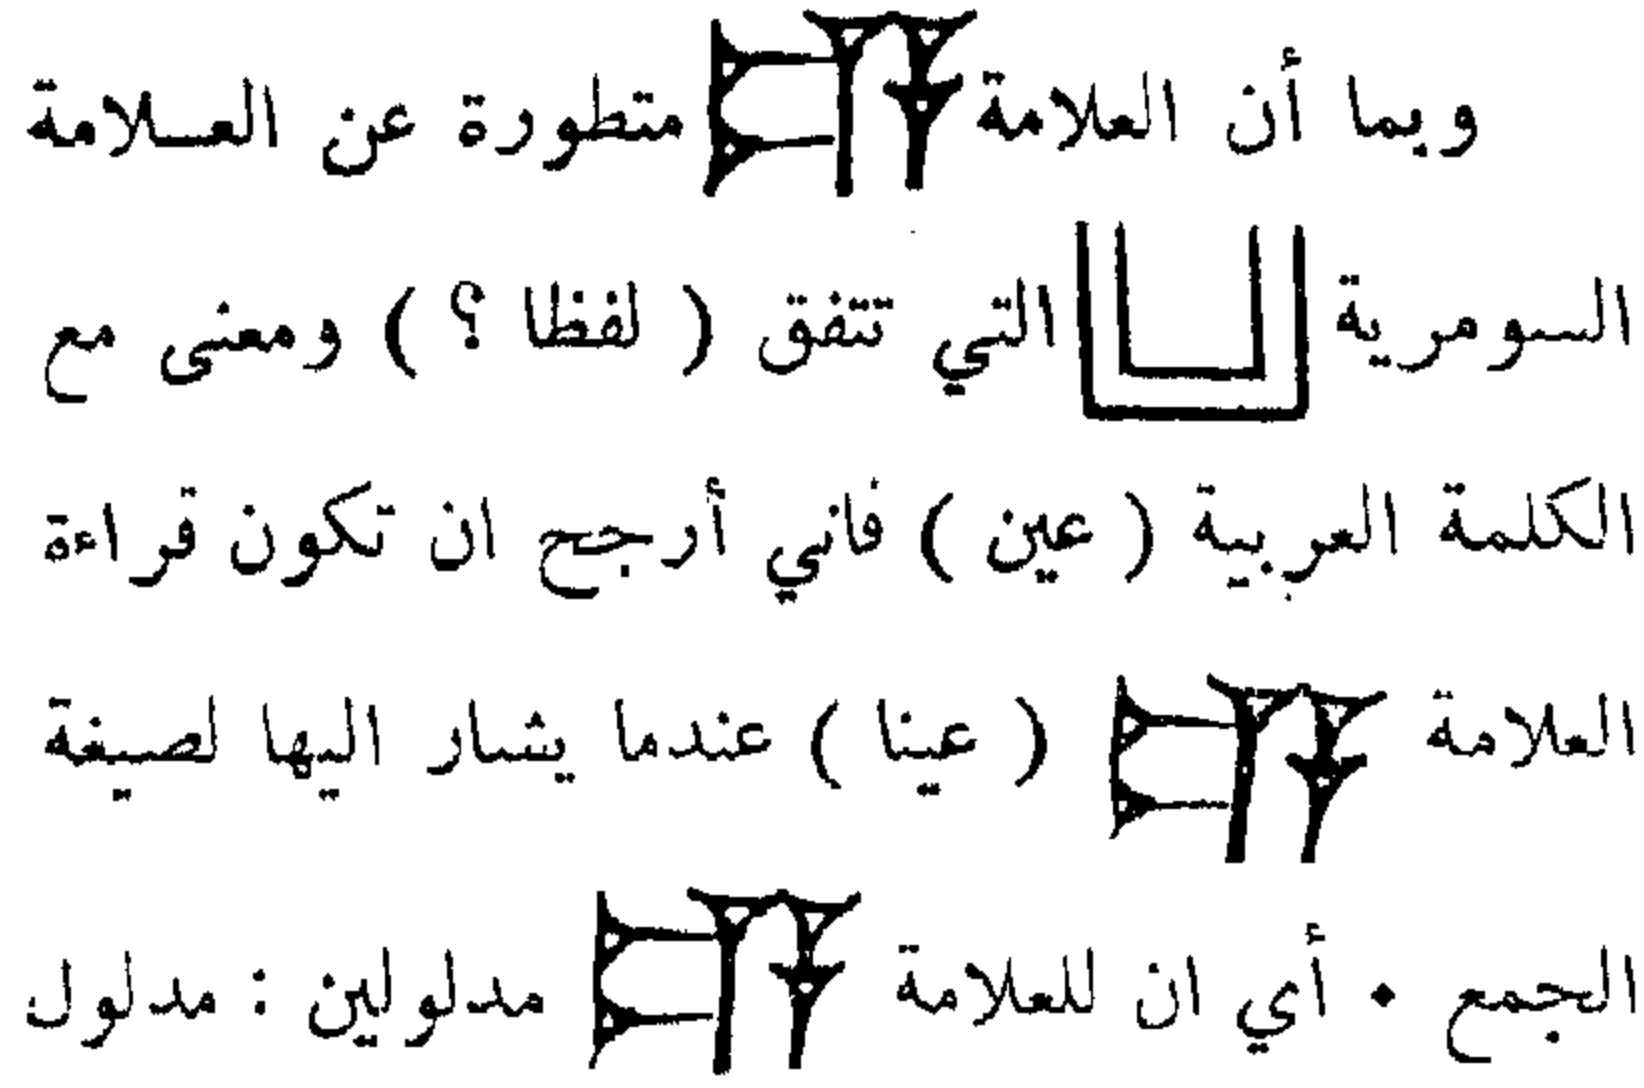 وبما أن العلامة 𒂍 متطورة عن العـــلامة
السومرية التي تتفق ( لفظا ؟ ) ومعنى مع
الكلمة العربية ( عين ) فاني أرجح ان تكون قراءة
العلامة 𒂍 ( عينا ) عندما يشار اليها لصيغة
الجمع • أي ان للعلامة 𒂍 مدلولين : مدلول